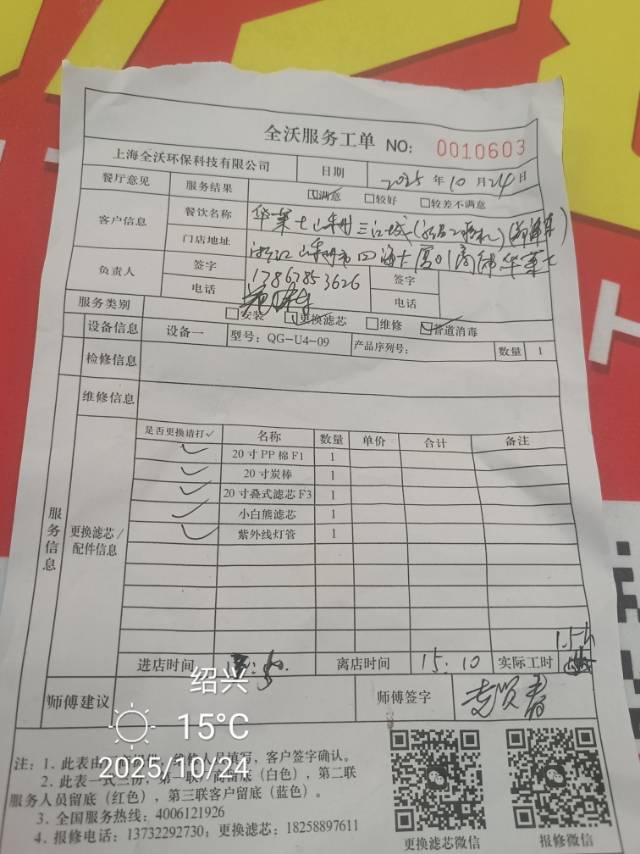 全沃服务工单 NO: 0010603
上海全沃环保科技有限公司 日期 2025年10月24日
餐厅意见 服务结果 ☑满意 □较好 □较差不满意
客户信息 餐饮名称 华莱士
门店地址 浙江 华莱士
负责人 签字 签字
电话 17867853626 电话
服务类别 □安装 ☑更换滤芯 □维修 ☑管道消毒
设备信息 设备一 型号: QG-U4-09 产品序列号: 数量 1
检修信息
维修信息
服务信息
更换滤芯/配件信息
是否更换请打✓ 名称 数量 单价 合计 备注
✓ 20寸PP棉F1 1
✓ 20寸炭棒 1
✓ 20寸叠式滤芯F3 1
✓ 小白熊滤芯 1
✓ 紫外线灯管 1
进店时间 离店时间 15:10 实际工时
师傅建议 师傅签字
绍兴
15°C
2025/10/24
注: 1、此表由 人员填写,客户签字确认。
2、此表一式三份,第一联 留底(白色),第二联
服务人员留底(红色),第三联客户留底(蓝色)。
3、全国服务热线: 4006121926
4、报修电话: 13732292730; 更换滤芯: 18258897611
更换滤芯微信 报修微信